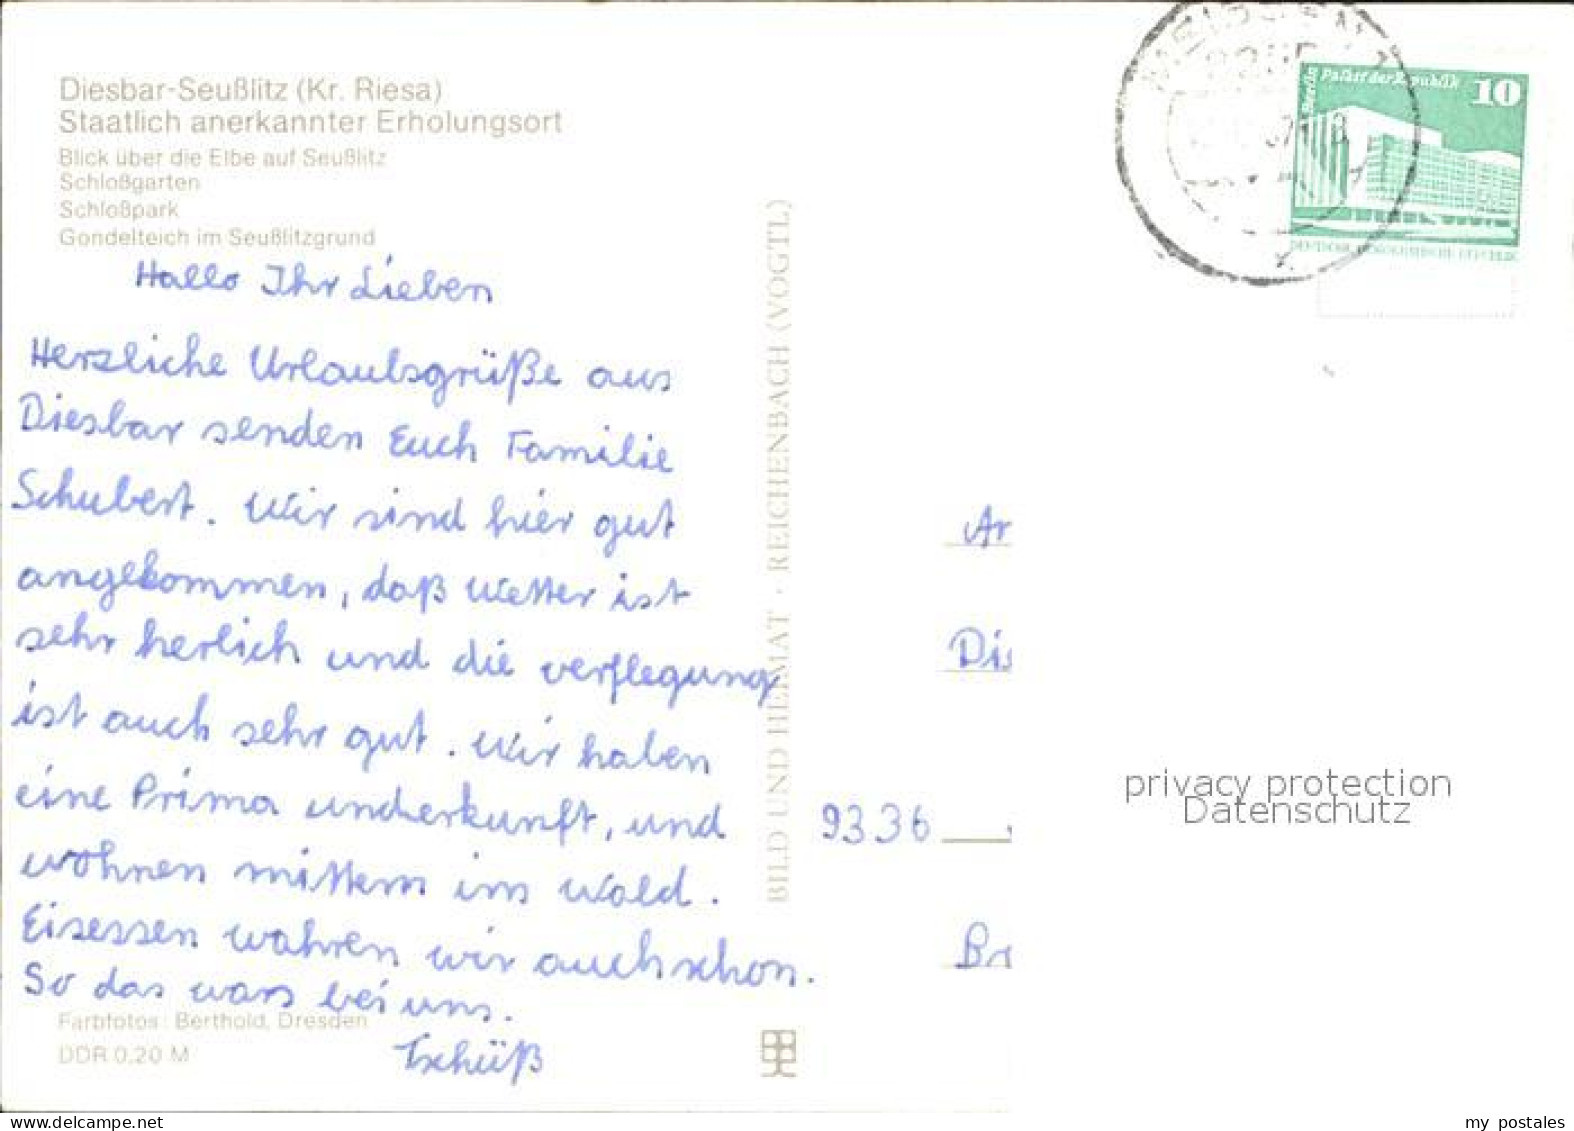 Diesbar-Seußlitz (Kr. Riesa)
Staatlich anerkannter Erholungsort
Blick über die Elbe auf Seußlitz
Schloßgarten
Schloßpark
Gondelteich im Seußlitzgrund
Hallo Ihr Lieben
Herzliche Urlaubsgrüße aus
Diesbar senden Euch Familie
Schubert. Wir sind hier gut
angekommen, daß Wetter ist
sehr herlich und die verflegung
ist auch sehr gut. Wir haben
eine Prima underkunft, und
wohnen mittem im Wald.
Eisessen wahren wir auch schon.
So das wars bei uns.
Tschüß
Farbfotos: Berthold, Dresden
DDR 0,20 M
BILD UND HEIMAT · REICHENBACH (VOGTL)
Berlin Palast der Republik 10
DEUTSCHE DEMOKRATISCHE REPUBLIK
An
9336
privacy protection
Datenschutz
www.delcampe.net
my_postales